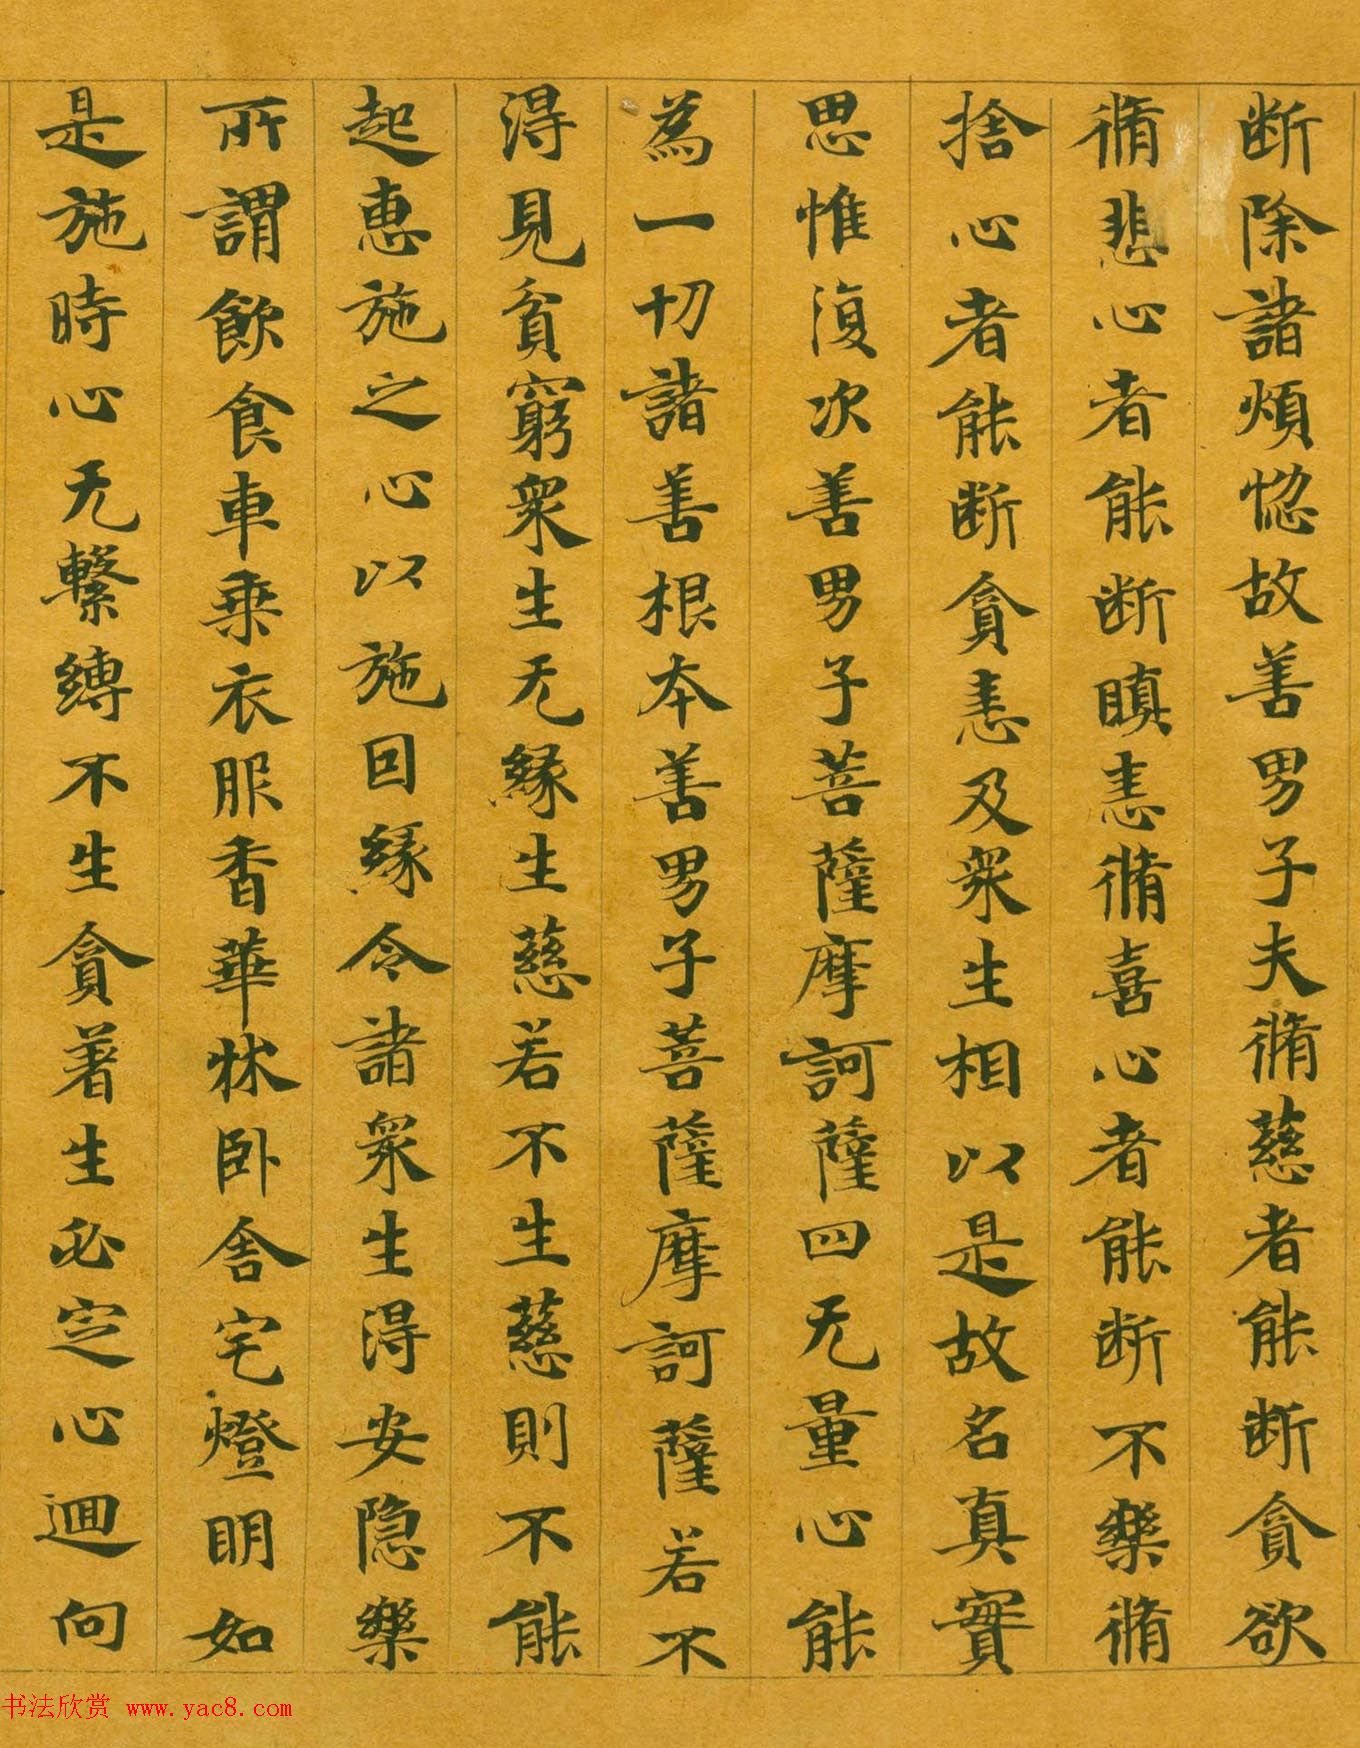 断除諸煩惚故善男子夫脩慈者能断貪欲
脩悲心者能断瞋恚脩喜心者能断不樂脩
捨心者能断貪恚及衆生相以是故名真實
思惟復次善男子菩薩摩訶薩四无量心能
為一切諸善根本善男子菩薩摩訶薩若不
得見貧窮衆生无緣生慈若不生慈則不能
起惠施之心以施因緣令諸衆生得安隐樂
所謂飲食車乗衣服香華牀卧舍宅燈明如
是施時心无繫縛不生貪著生必定心迴向
书法欣赏 www.yac8.com